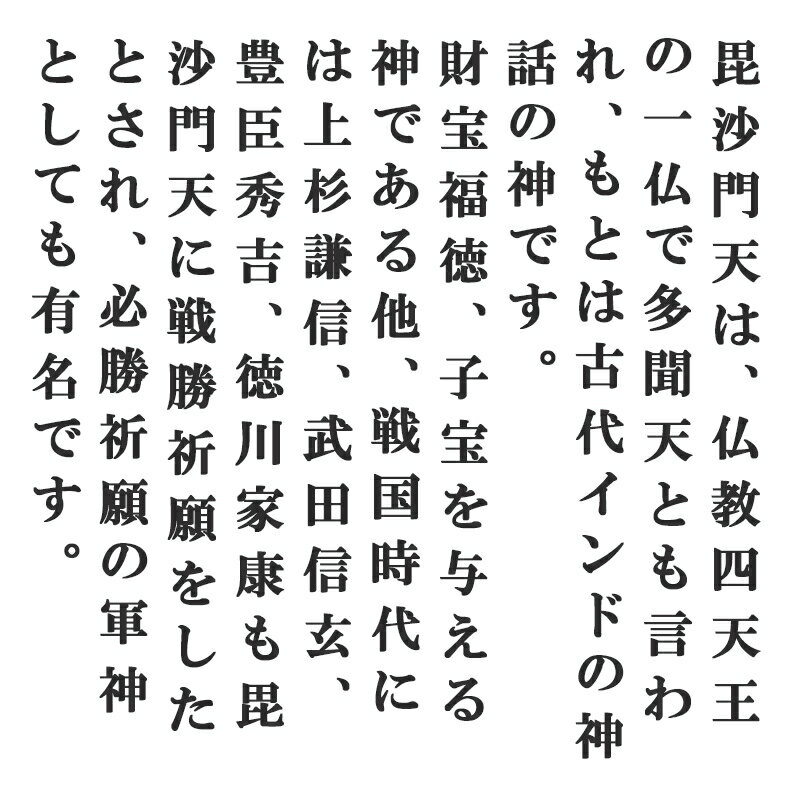 毘沙門天は、仏教四天王
の一仏で多聞天とも言わ
れ、もとは古代インドの神
話の神です。
財宝福徳、子宝を与える
神である他、戦国時代に
は上杉謙信、武田信玄、
豊臣秀吉、徳川家康も毘
沙門天に戦勝祈願をした
とされ、必勝祈願の軍神
としても有名です。